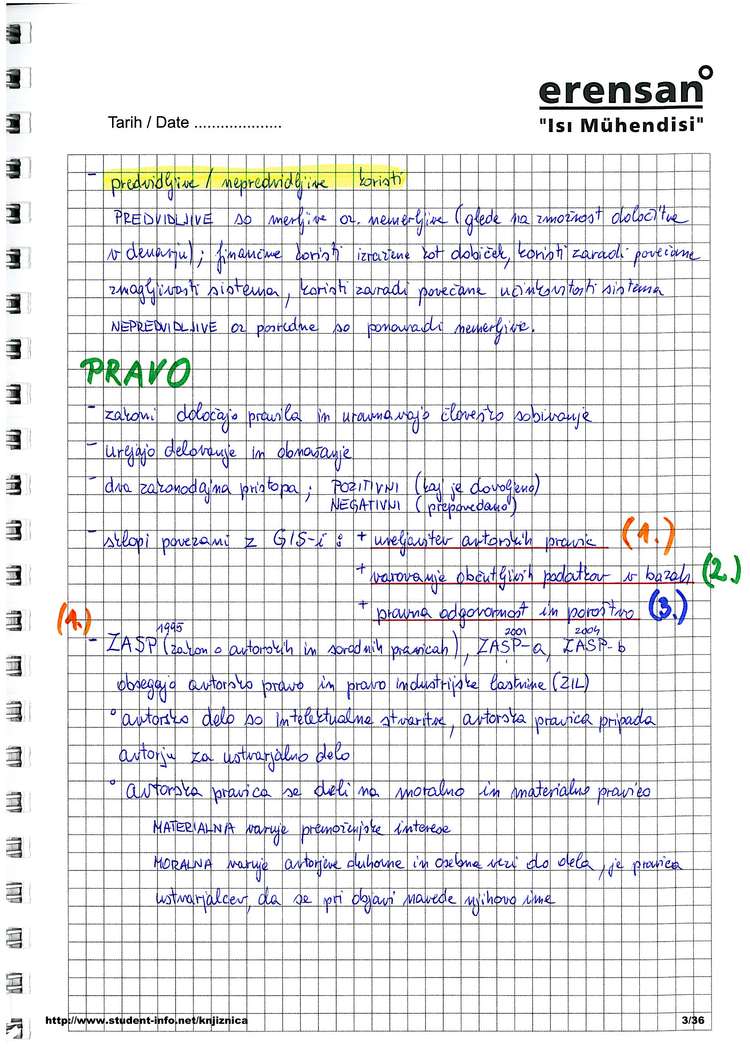 erensan°
"Isı Mühendisi"
Tarih / Date ....................
- predvidljive / nepredvidljive koristi
PREDVIDLJIVE so merljive oz. nemerljive (glede na zmožnost določitve
v denarju); finančne koristi izražene kot dobiček, koristi zaradi povečane
zmogljivosti sistema, koristi zaradi povečane učinkovitosti sistema
NEPREDVIDLJIVE oz posredne so ponavadi nemerljive.
PRAVO
- zakoni določajo pravila in uravnavajo človeško sobivanje
- urejajo delovanje in obnašanje
- dva zakonodajna pristopa; POZITIVNI (kaj je dovoljeno)
NEGATIVNI (prepovedano)
- sklopi povezani z GIS-i: + uveljavitev avtorskih pravic (1.)
+ varovanje občutljivih podatkov v bazah (2.)
+ pravna odgovornost in poroštvo (3.)
(1.)
- ZASP 1995 (zakon o avtorskih in sorodnih pravicah), ZASP-a 2001, ZASP-b 2004
obsegajo avtorsko pravo in pravo industrijske lastnine (ZIL)
° avtorsko delo so intelektualne stvaritve, avtorska pravica pripada
avtorju za ustvarjalno delo
° avtorska pravica se deli na moralno in materialno pravico
MATERIALNA varuje premoženjske interese
MORALNA varuje avtorjeve duhovne in osebne vezi do dela, je pravica
ustvarjalcev, da se pri objavi navede njihovo ime
http://www.student-info.net/knjiznica
3/36